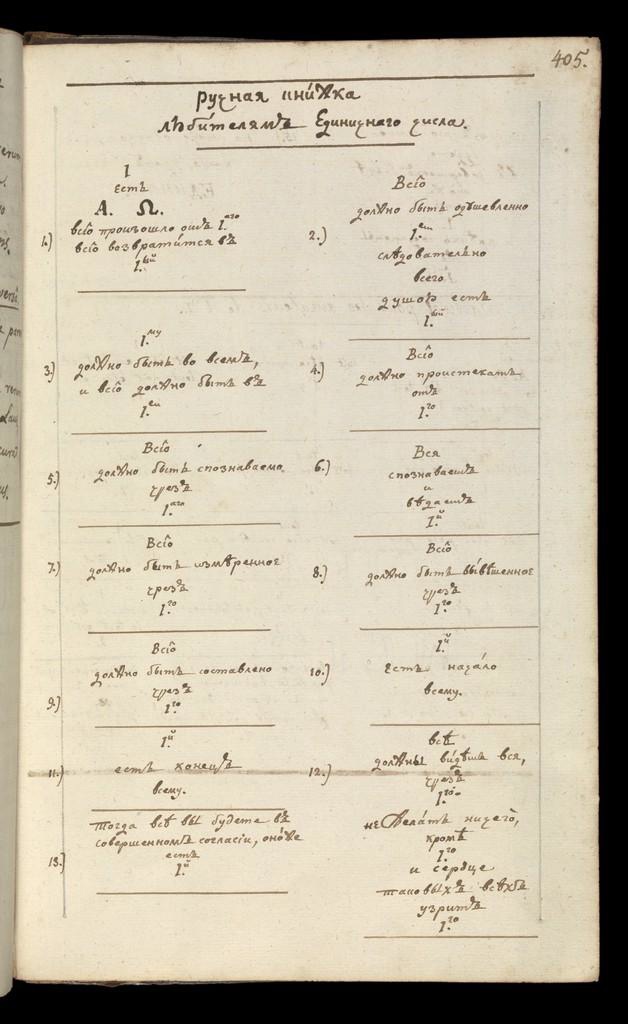 405.
Ручная книжка
любителямъ Единичнаго числа.
I
Есть
А. Ω.
1.) всіо произошло отъ 1.аго
всіо возвратится въ
1.ый
2.) Всіо
должно быть одушевленно
1.ем
слѣдовательно
всего
душою есть
1.ый
3.) 1.му
должно быть во всемъ,
и всіо должно быть въ
1.ем
4.) Всіо
должно проистекать
отъ
1.го
5.) Всіо
должно быть спознаваемо
чрезъ
1.аго
6.) Вся
спознаваетъ
и
вѣдаетъ
1.й
7.) Всіо
должно быть измѣренное
чрезъ
1.го
8.) Всіо
должно быть вывѣшенное
чрезъ
1.го
9.) Всіо
должно быть составлено
чрезъ
1.го
10.) 1.й
Есть начало
всему.
11.) 1.й
есть конецъ
всему.
12.) всѣ
должны видѣть вся,
чрезъ
1.го
не желать ничего,
кромѣ
1.го
и сердце
таковыхъ всѣхъ
узритъ
1.го
13.) Тогда всѣ вы будете въ
совершенномъ согласіи, оноже
есть
1.й